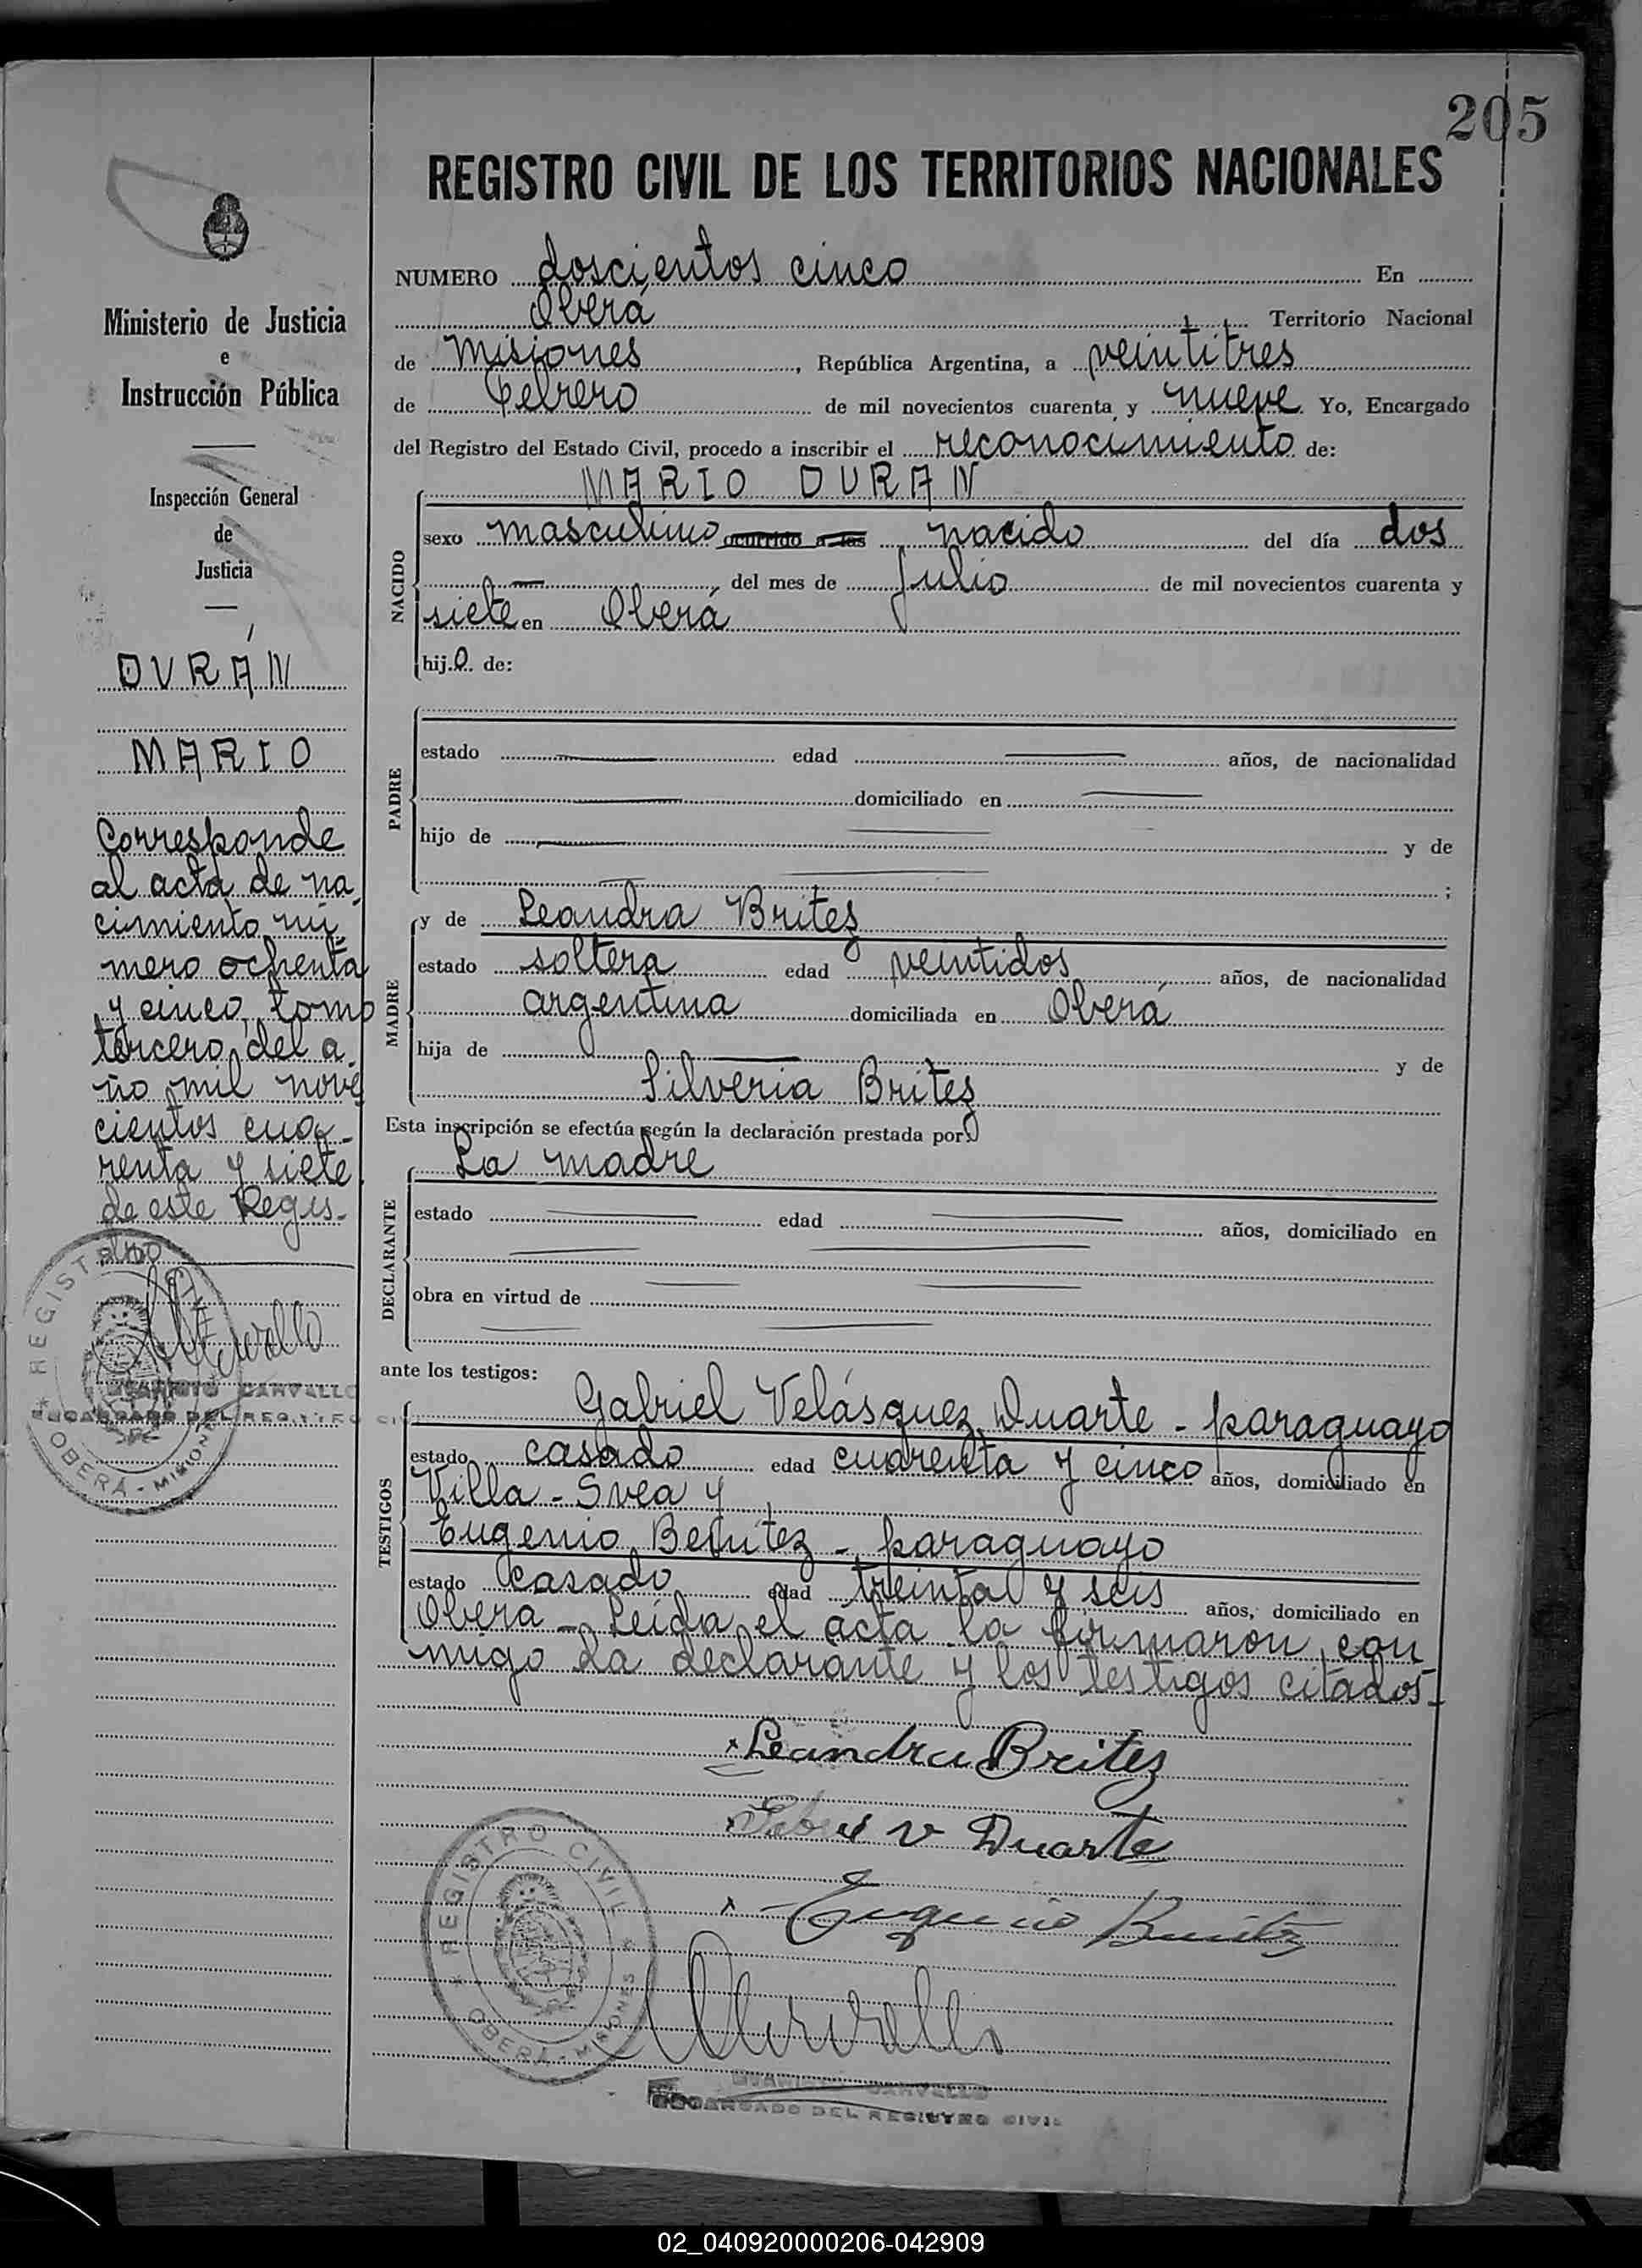 205
REGISTRO CIVIL DE LOS TERRITORIOS NACIONALES
Ministerio de Justicia
e
Instrucción Pública
Inspección General
de
Justicia
DURÁN
MARIO
Corresponde
al acta de na-
cimiento nú-
mero ochenta
y cinco, tomo
tercero, del a-
ño mil nove
cientos cua-
renta y siete
de este Regis-
tro
REGISTRO CIVIL
OBERÁ - MISIONES
CARVALLO
ENCARGADO DEL REGISTRO CIVIL
NUMERO doscientos cinco En
Oberá Territorio Nacional
de Misiones, República Argentina, a veintitres
de Febrero de mil novecientos cuarenta y nueve. Yo, Encargado
del Registro del Estado Civil, procedo a inscribir el reconocimiento de:
MARIO DURAN
NACIDO
sexo masculino ocurrido a las nacido del día dos
— del mes de Julio de mil novecientos cuarenta y
siete en Oberá
hijo de:
PADRE
estado — edad — años, de nacionalidad
— domiciliado en —
hijo de — y de
— ;
MADRE
y de Leandra Britez
estado soltera edad veintidos años, de nacionalidad
argentina domiciliada en Oberá
hija de — y de
Silveria Britez
Esta inscripción se efectúa según la declaración prestada por:
DECLARANTE
La madre
estado — edad — años, domiciliado en
obra en virtud de
ante los testigos:
TESTIGOS
Gabriel Velásquez Duarte - paraguayo
estado casado edad cuarenta y cinco años, domiciliado en
Villa - Svea y
Eugenio Benítez - paraguayo
estado casado edad treinta y seis años, domiciliado en
Oberá - Leída el acta la firmaron con
migo la declarante y los testigos citados -
Leandra Britez
v Duarte
Eugenio Benitez
REGISTRO CIVIL
OBERÁ - MISIONES
CARVALLO
ENCARGADO DEL REGISTRO CIVIL
02_040920000206-042909